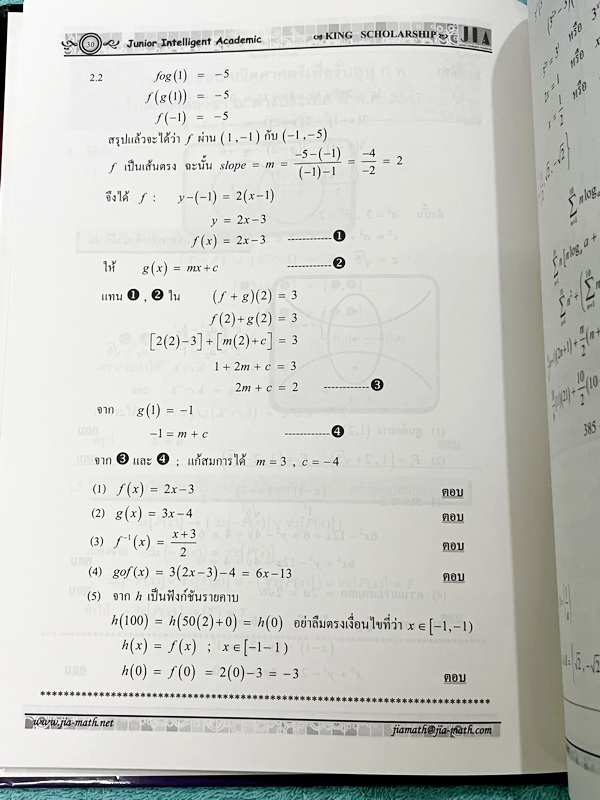 30 Junior Intelligent Academic KING SCHOLARSHIP JIA
2.2 fog(1) = -5
f(g(1)) = -5
f(-1) = -5
สรุปแล้วจะได้ว่า f ผ่าน (1,-1) กับ (-1,-5)
f เป็นเส้นตรง ฉะนั้น slope = m = \frac{-5-(-1)}{(-1)-1} = \frac{-4}{-2} = 2
จึงได้ f : y-(-1) = 2(x-1)
y = 2x-3
f(x) = 2x-3 ------------❶
ให้ g(x) = mx+c ------------❷
แทน ❶ , ❷ ใน (f+g)(2) = 3
f(2)+g(2) = 3
[2(2)-3]+[m(2)+c] = 3
1+2m+c = 3
2m+c = 2 ------------❸
จาก g(1) = -1
-1 = m+c ------------❹
จาก ❸ และ ❹ ; แก้สมการได้ m=3 , c=-4
(1) f(x) = 2x-3 ตอบ
(2) g(x) = 3x-4 ตอบ
(3) f⁻¹(x) = \frac{x+3}{2} ตอบ
(4) gof(x) = 3(2x-3)-4 = 6x-13 ตอบ
(5) จาก h เป็นฟังก์ชันรายคาบ
h(100) = h(50(2)+0) = h(0) อย่าลืมตรงเงื่อนไขที่ว่า x∈[-1,-1)
h(x) = f(x) ; x∈[-1-1)
h(0) = f(0) = 2(0)-3 = -3 ตอบ
www.jia-math.net jiamath@jia-math.com